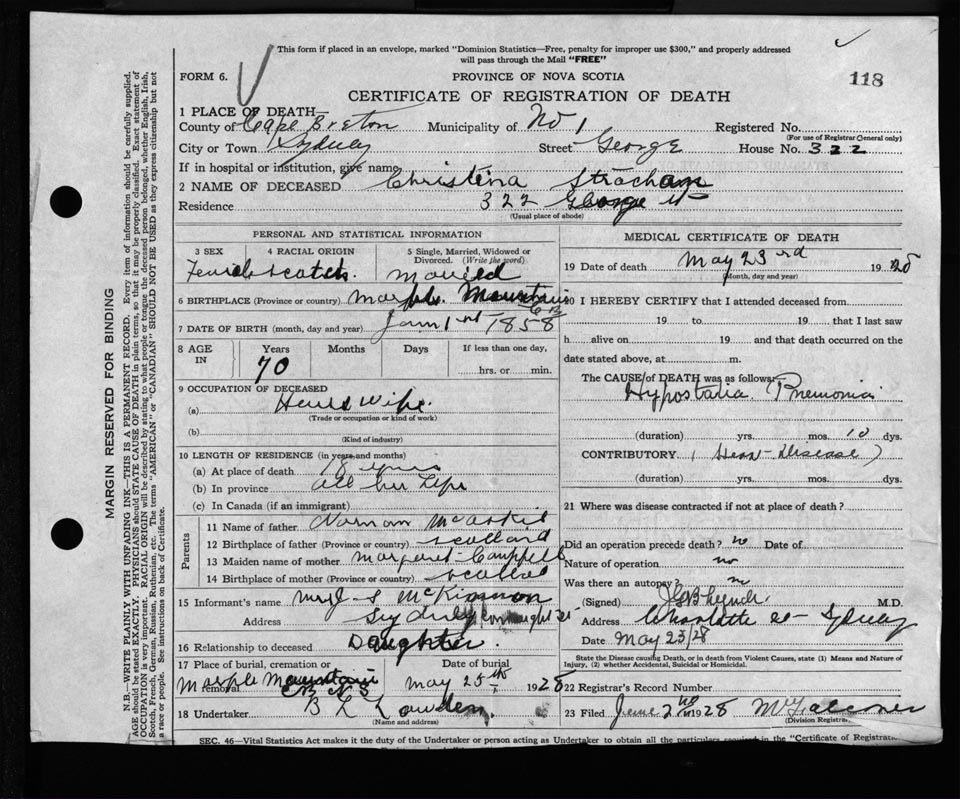 This form if placed in an envelope, marked "Dominion Statistics—Free, penalty for improper use $300," and properly addressed
will pass through the Mail "FREE"
FORM 6.
PROVINCE OF NOVA SCOTIA
118
CERTIFICATE OF REGISTRATION OF DEATH
1 PLACE OF DEATH
County of Cape Breton Municipality of No 1 Registered No.
(For use of Registrar General only)
City or Town Sydney Street George House No. 322
If in hospital or institution, give name
2 NAME OF DECEASED Christina Strachan
Residence 322 George St
(Usual place of abode)
PERSONAL AND STATISTICAL INFORMATION
3 SEX 4 RACIAL ORIGIN 5 Single, Married, Widowed or Divorced. (Write the word)
Female Scotch. Married
6 BIRTHPLACE (Province or country) Marple Mountain
C B
7 DATE OF BIRTH (month, day and year) Jan 1st 1858
8 AGE IN Years Months Days If less than one day,
70 hrs. or min.
9 OCCUPATION OF DECEASED
(a) House Wife.
(Trade or occupation or kind of work)
(b)
(Kind of industry)
10 LENGTH OF RESIDENCE (in years and months)
(a) At place of death 18 years
(b) In province all her Life
(c) In Canada (if an immigrant)
Parents
11 Name of father Norman McAskil
12 Birthplace of father (Province or country) Scotland
13 Maiden name of mother Margaret Campbell
14 Birthplace of mother (Province or country) Scotland
15 Informant's name McKinnon
Address Sydney
16 Relationship to deceased Daughter.
17 Place of burial, cremation or removal Date of burial
Marple Mountain May 25th 1928
C B N S
18 Undertaker B L Lowden
(Name and address)
MEDICAL CERTIFICATE OF DEATH
19 Date of death May 23rd 1928
(Month, day and year)
20 I HEREBY CERTIFY that I attended deceased from
19 to 19 that I last saw
h alive on 19 and that death occurred on the
date stated above, at m.
The CAUSE of DEATH was as follows:
Hypostatia Pnemonia
(duration) yrs. mos. 10 dys.
CONTRIBUTORY (Hear-Disease)
(duration) yrs. mos. dys.
21 Where was disease contracted if not at place of death?
Did an operation precede death? no Date of
Nature of operation no
Was there an autopsy? no
(Signed) M.D.
Address Charlotte St- Sydney
Date May 23/28
State the Disease causing Death, or in death from Violent Causes, state (1) Means and Nature of
Injury, (2) whether Accidental, Suicidal or Homicidal.
22 Registrar's Record Number
23 Filed June 2nd 1928
(Division Registrar)
SEC. 46—Vital Statistics Act makes it the duty of the Undertaker or person acting as Undertaker to obtain all the particulars required in the "Certificate of Registration
MARGIN RESERVED FOR BINDING
N.B.—WRITE PLAINLY WITH UNFADING INK—THIS IS A PERMANENT RECORD. Every item of information should be carefully supplied.
AGE should be stated EXACTLY. PHYSICIANS should STATE CAUSE OF DEATH in plain terms, so that it may be properly classified. Exact statement of
OCCUPATION is very important. RACIAL ORIGIN will be described by stating to what people or tongue the deceased person belonged, whether English, Irish,
Scotch, French, German, Russian, Ruthenian, etc. The terms "AMERICAN" or "CANADIAN" SHOULD NOT BE USED as they express citizenship but not
a race or people. See instructions on back of Certificate.